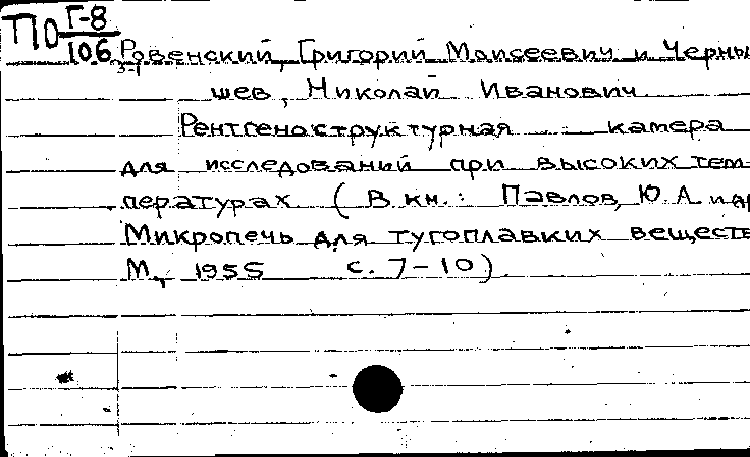 ПО Г-8
106
3-1
Ровенский, Григорий Моисеевич и Черны
шев, Николай Иванович
Рентгеноструктурная камера
для исследований при высоких тем
пературах. (В кн.: Павлов, Ю.А. и др
Микропечь для тугоплавких веществ
М., 1955 с. 7-10)